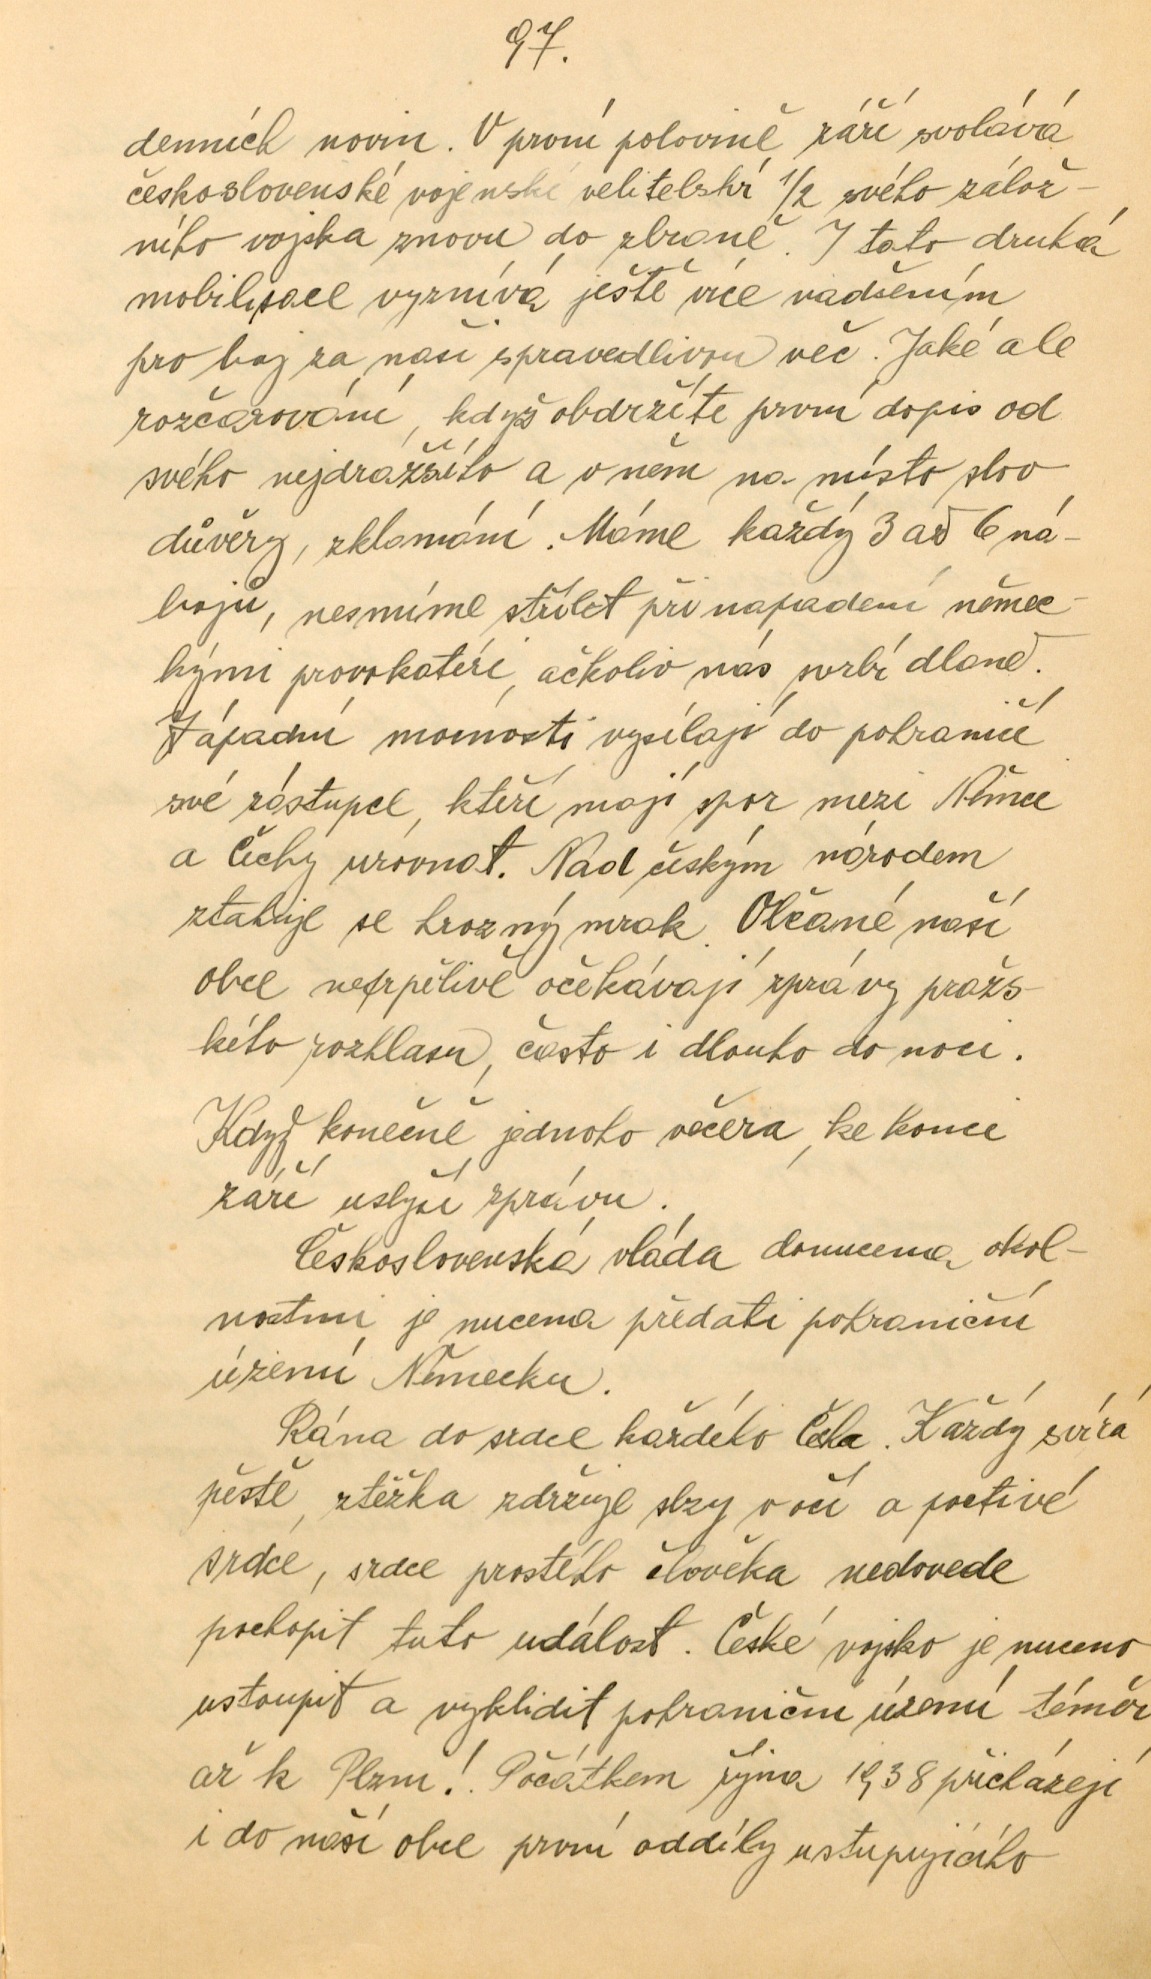 97.
denních novin. V první polovině září svolává
československé vojenské velitelství 1/2 svého zálož-
ního vojska znovu do zbraně. I tato druhá
mobilisace vyznívá ještě více nadšením
pro boj za naši spravedlivou věc. Jaké ale
rozčarování, když obdržíte první dopis od
svého nejdražšího a v něm na místo slov
důvěry, zklamání. Máme každý 3 až 6 ná-
bojů, nesmíme střílet při napadení němec-
kými provokatéri, ačkoliv nás svrbí dlaně.
Západní mocnosti vysílají do pohraničí
své zástupce, kteří mají spor mezi Němce
a Čechy urovnat. Nad českým národem
ztahuje se hrozný mrak. Občané naší
obce netrpělivě očekávají zprávy pražs-
kého rozhlasu, často i dlouho do noci.
Když konečně jednoho večera, ke konci
září uslyší zprávu.
Československá vláda donucena okol-
nostmi je nucena předati pohraniční
území Německu.
Rána do srdce každého Čecha. Každý svírá
pěstě, ztěžka zdržuje slzy v očí a poctivé
srdce, srdce prostého člověka nedovede
pochopit tuto událost. České vojsko je nuceno
ustoupit a vyklidit pohraniční území téměř
až k Plzni!. Počátkem října 1938 přicházejí
i do naší obce první oddíly ustupujícího